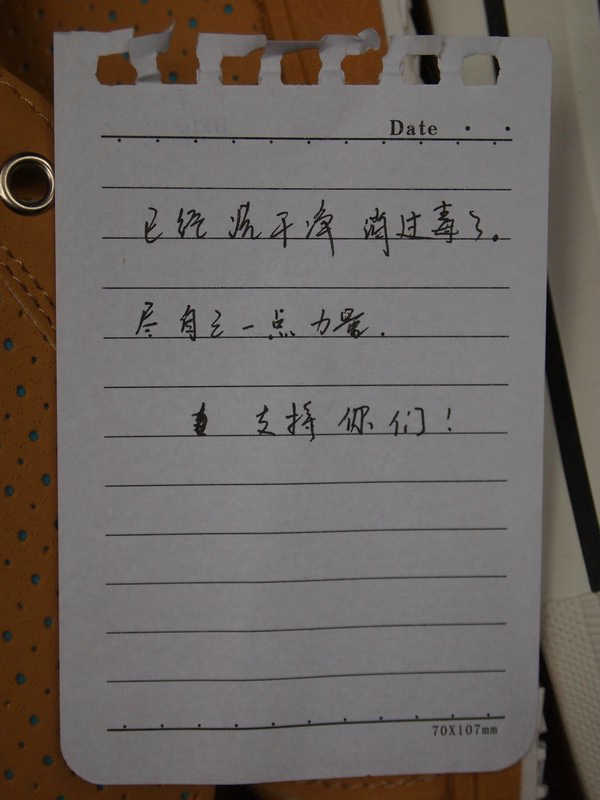 Date
已经洗干净 消过毒了。
尽自己一点力量.
支持你们!
70X107mm